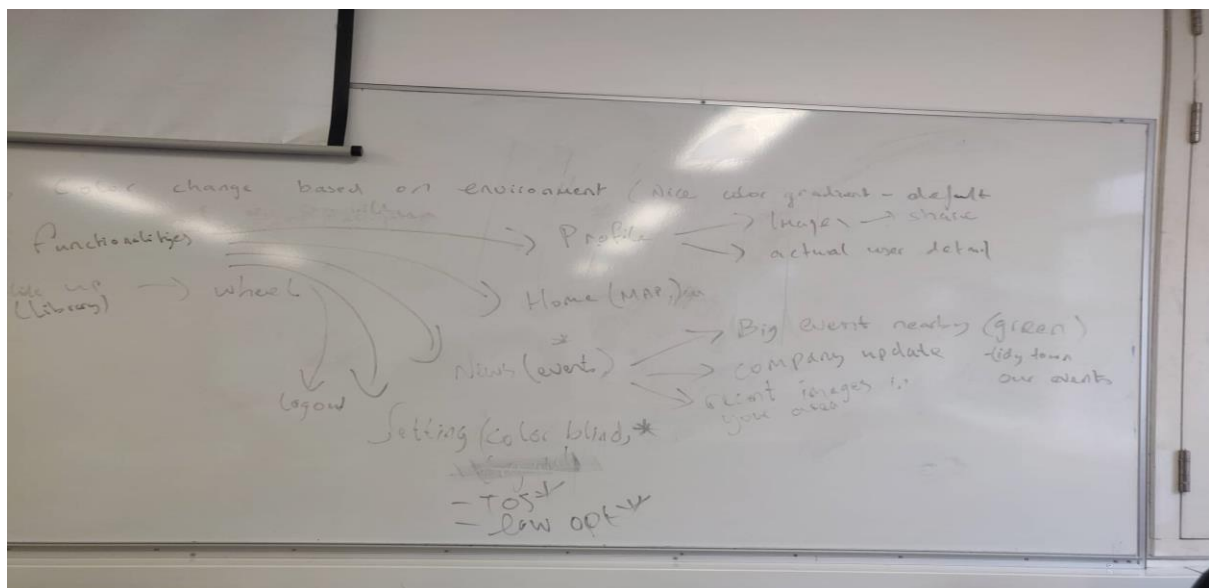 Color change based on environment (Nice color gradient - default
Functionalities
Profile
Images → share
actual user detail
up → wheel
(Library)
Home (MAP,)
News (event*)
Big event nearby (green)
company update
tidy town
our events
images in
your area
logout
Setting (color blind,*
- TOS*
- law opt*